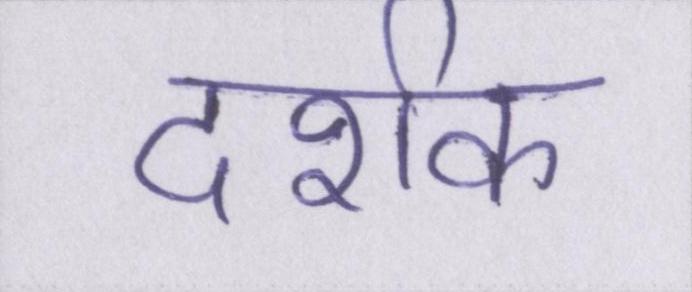 दर्शक